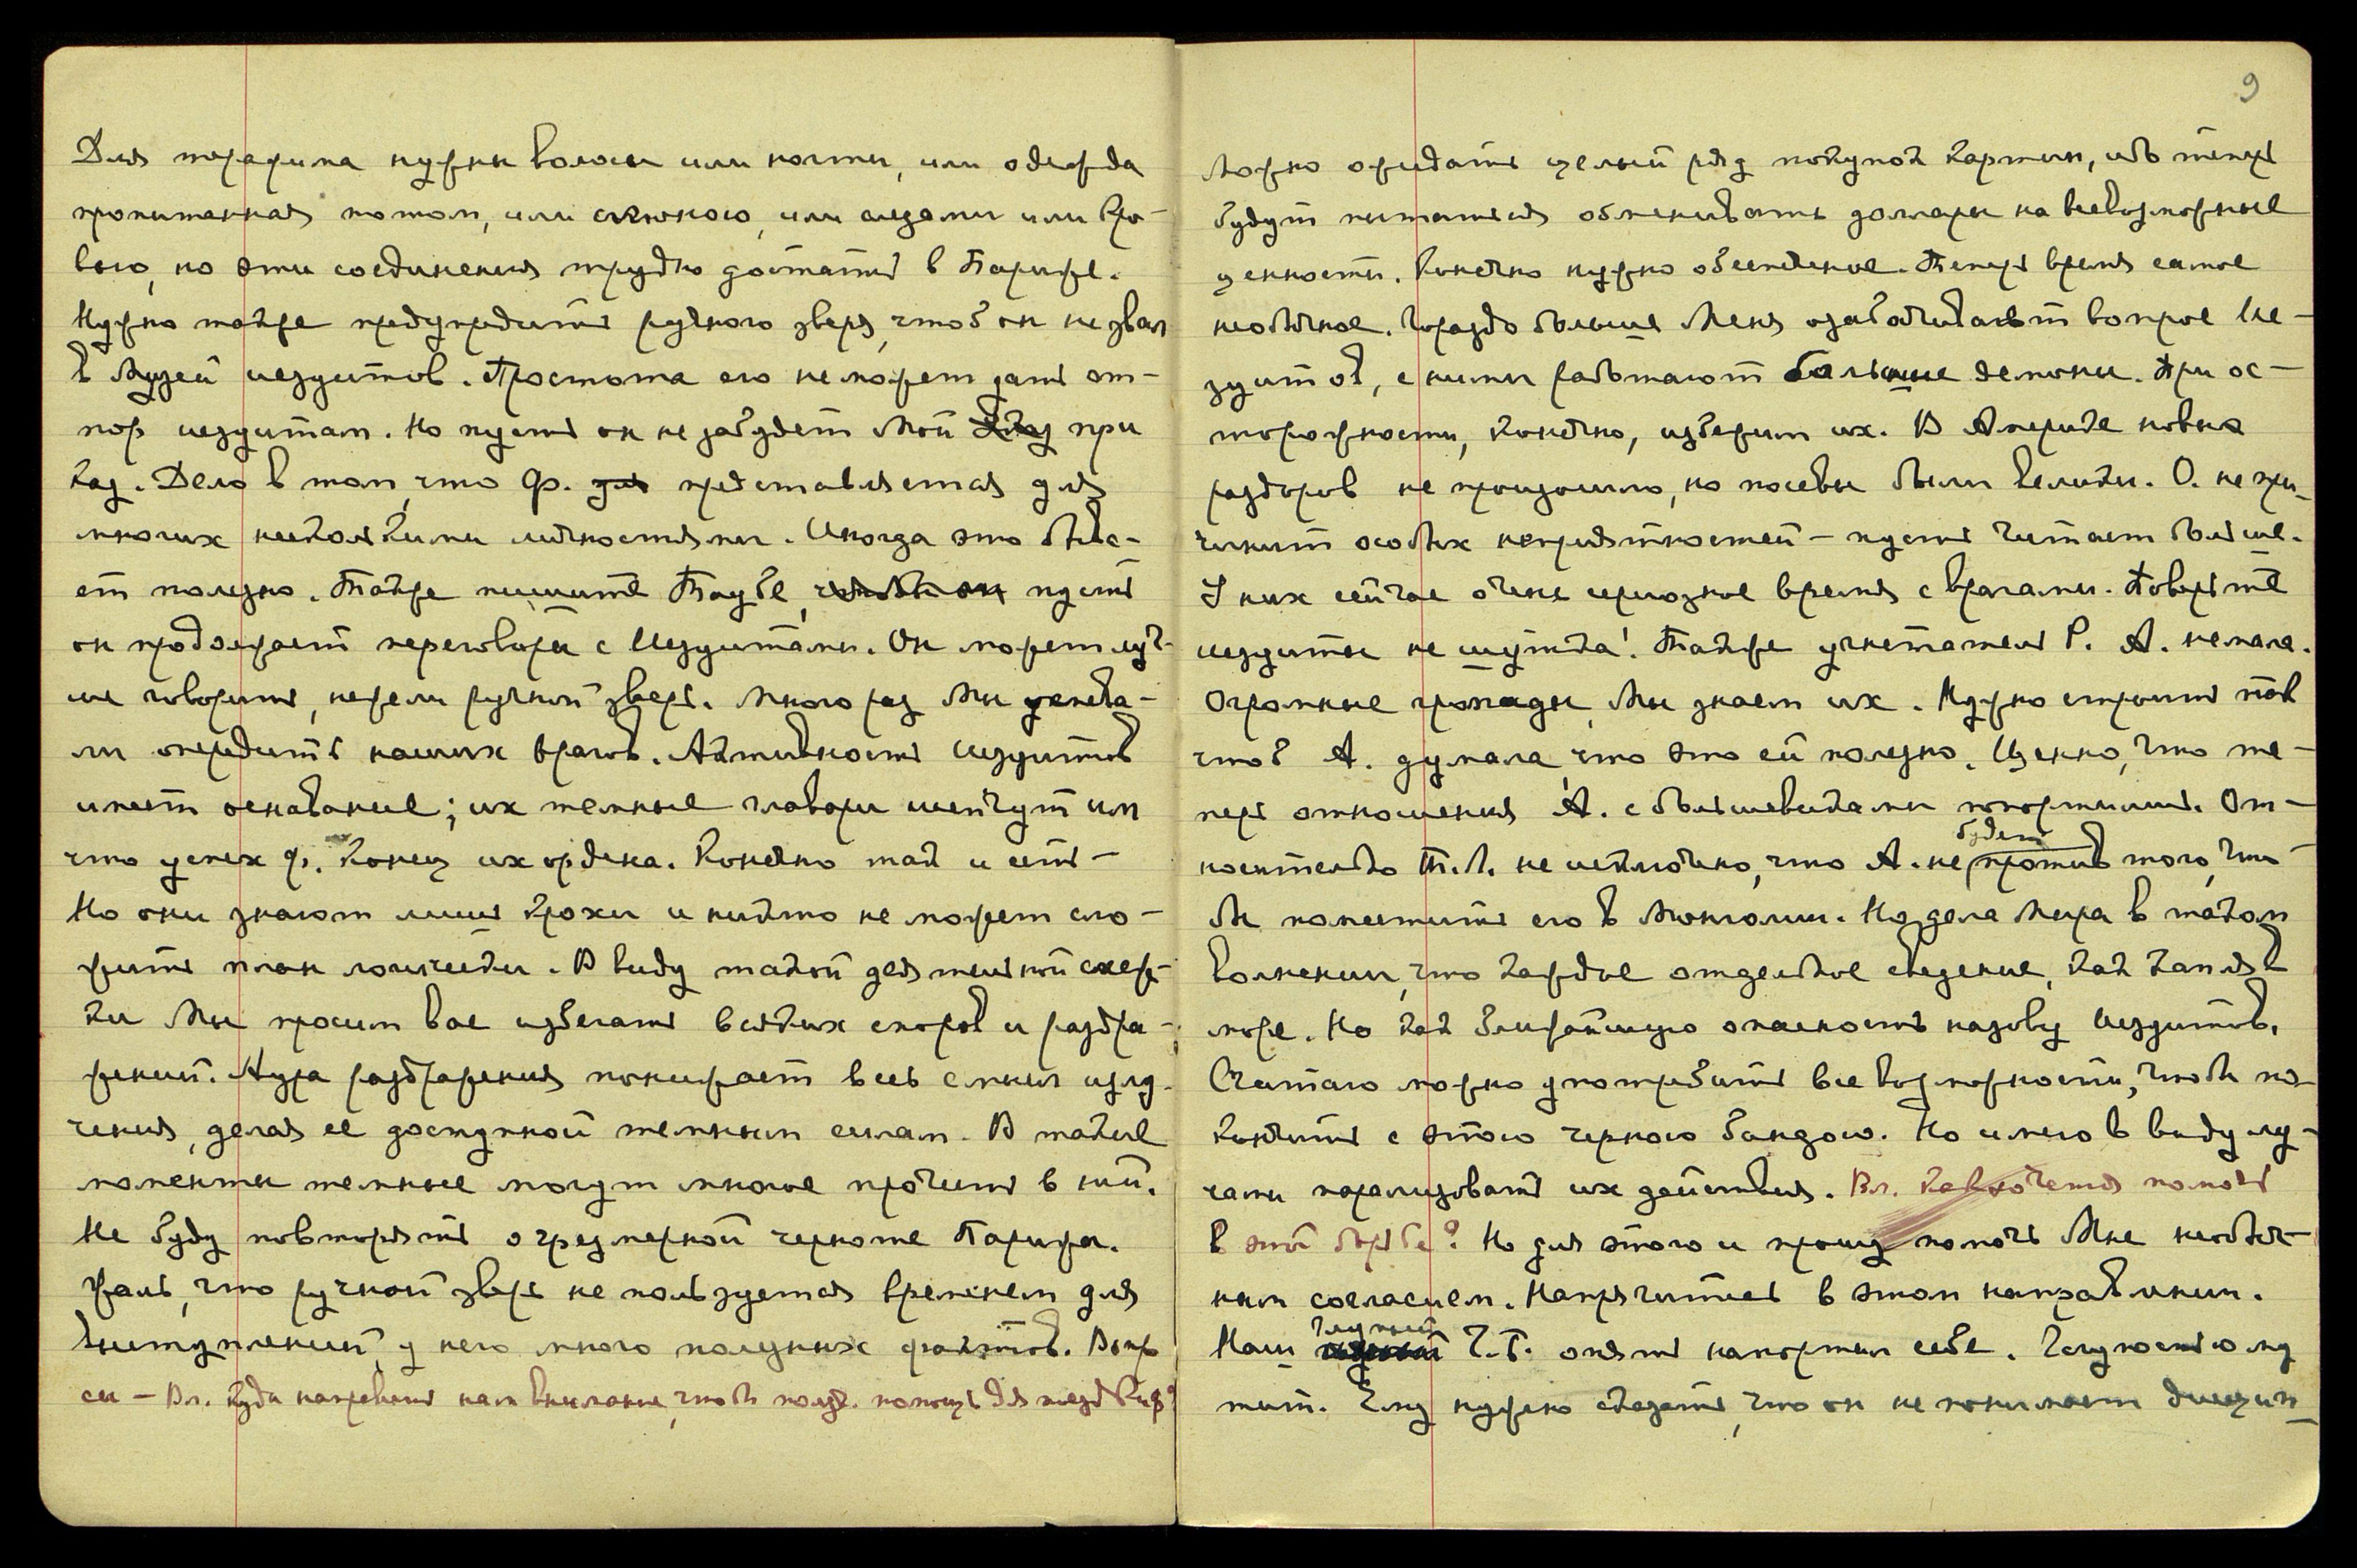 Для терафима нужны волосы или ногти, или одежда
пропитанная потом, или слюною, или слезами или кро-
вью, но эти соединения трудно достать в Париже.
Нужно также предупредить ручного зверя, чтоб он не звал
в Музей иезуитов. Простота его не может дать от-
пор иезуитам. Но пусть он не забудет Мой при
каз. Дело в том, что Ф. представляется для
многих несколькими личностями. Иногда это быва-
ет полезно. Также пишите Таубе, пусть
он продолжает переговоры с Иезуитами. Он может луч-
ше говорить, нежели ручной зверь. Много раз Мы успева-
ли опередить наших врагов. Активность Иезуитов
имеет основание; их темные главари шепчут им
что успех Ф. конец их ордена. Конечно так и есть –
Но они знают лишь крохи и никто не может сло-
жить план мозаики. В виду такой деятельной слеж-
ки Мы просим вас избегать всяких споров и раздра-
жений. Аура раздражения понижает весь смысл излу-
чения, делая ее доступной темным силам. В такие
моменты темные могут многое прочесть в ней.
Не буду повторять о чрезмерной черноте Парижа.
Жаль, что ручной зверь не пользуется временем для
выступлений, у него много полезных фактов. Вопро
сы – Вл. куда направить нам внимание, чтобы получ. помощь для
9
Можно ожидать целый ряд покупок картин, ибо теперь
будут пытаться обменивать доллары на всевозможные
ценности. Конечно нужно обеспечение. Теперь время самое
необычное. Гораздо больше Меня озабочивает вопрос Ие-
зуитов, с ними работают большие демоны. При ос-
торожности, конечно, избежим их. В Америке новых
раздоров не произошло, но посевы были велики. О. не при-
чинит особых неприятностей – пусть читает больше.
У них сейчас очень серьозное время с врагами. Поверьте
иезуиты не шутка! Также угнетатели Р. А. немала.
Огромные громады, Мы знаем их. Нужно строить так
чтоб А. думала, что это ей полезно. Ценно, что те-
перь отношения А. с большевиками попортились. От-
носительно Т.Л. не исключено, что А. не будет против того, что
бы поместить его в Монголии. Но дела Мира в таком
волнении, что каждое отдельное сведение, как капля в
море. Но как ближайшую опасность назову Иезуитов.
Считаю можно употребить все возможности, чтобы по-
кончить с этою черною бандою. Но имею в виду лу-
чами парализовать их действия. Вл. как хочется помочь
в этой борьбе? Но для этого и прошу помочь Мне необыч-
ным согласием. Напрягитесь в этом направлении.
Наш глупый Ч.Б. опять напортил себе. Глупостью му
тит. Ему нужно сказать, что он не понимает дисцип-